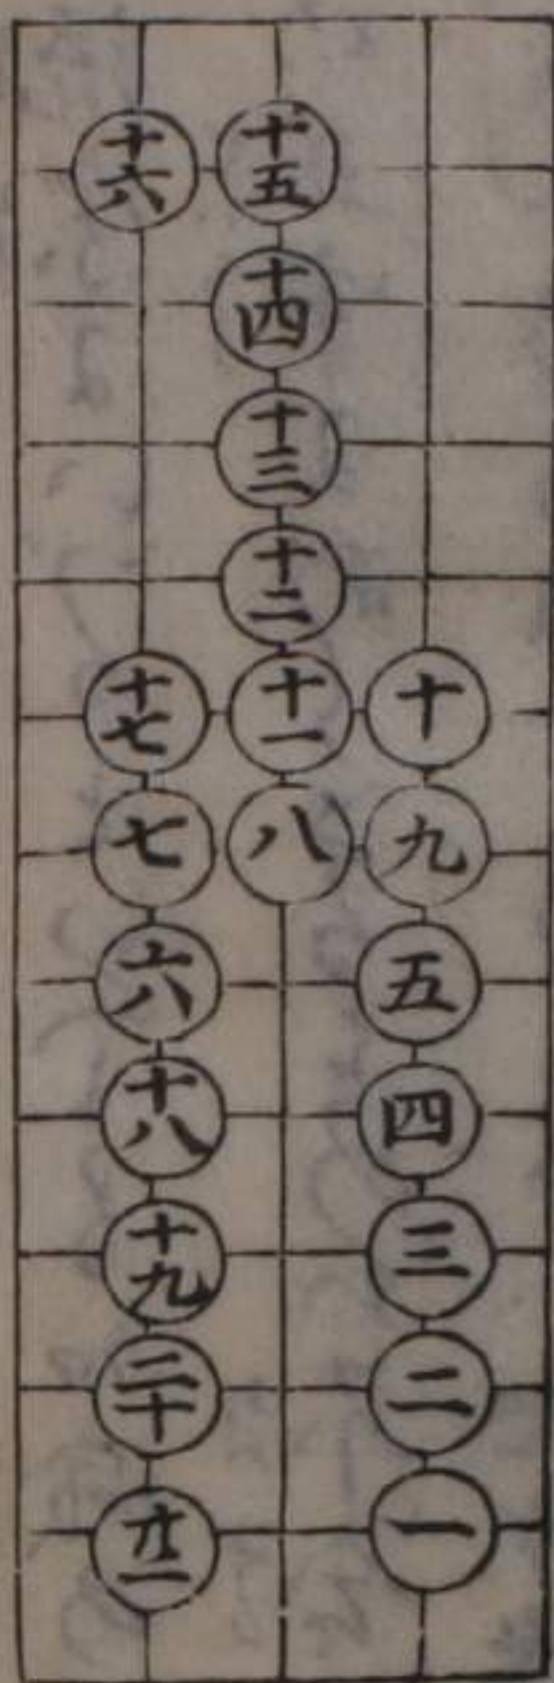 十
九
五
四
三
二
一
十五
十四
十三
十二
十一
八
十六
十七
七
六
十八
十九
二十
廿一